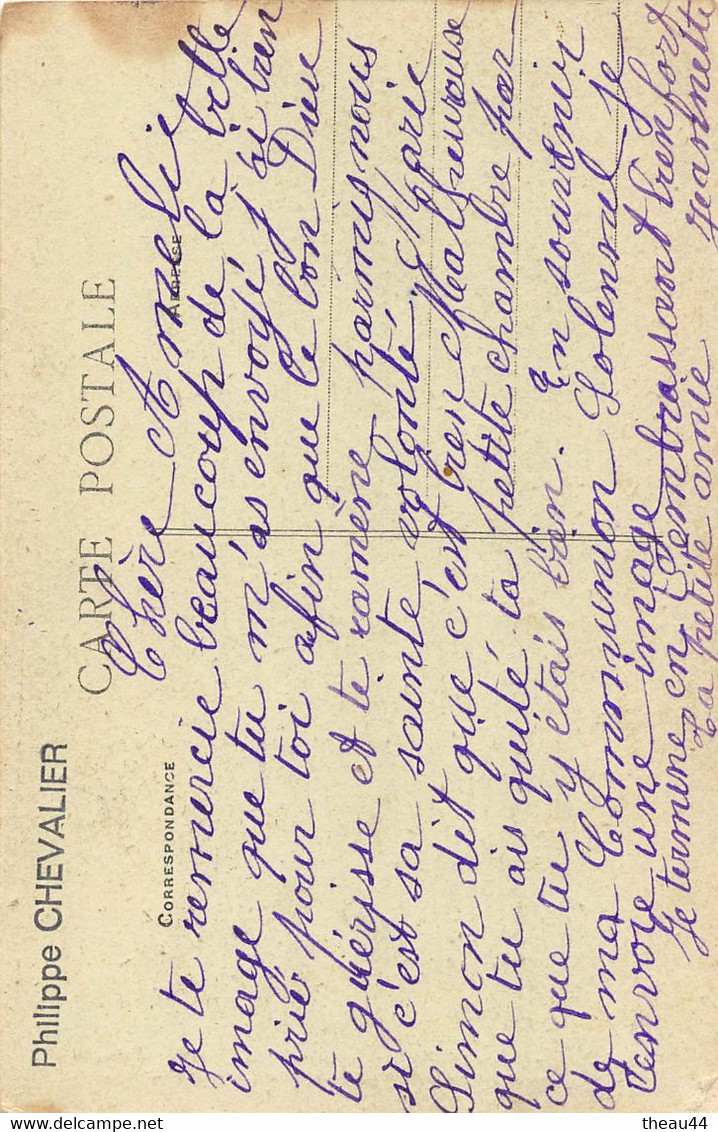 Philippe CHEVALIER
CARTE POSTALE
CORRESPONDANCE
ADRESSE
Chère Amelie
Je te remercie beaucoup de la belle
image que tu m'as envoyé, j'ai bien
prier pour toi afin que le bon Dieu
te guérisse et te ramène parmis nous
si c'est sa sainte volonté. Marie
Simon dit que c'est bien Malheureuse
que tu ais quité ta petite chambre par
ce que tu y étais bien. En souvenir
de ma Communion Solennel je
t'envoie une image
Je termine en t'embrassant bien fort
Ta petite amie Jeannette
theau44